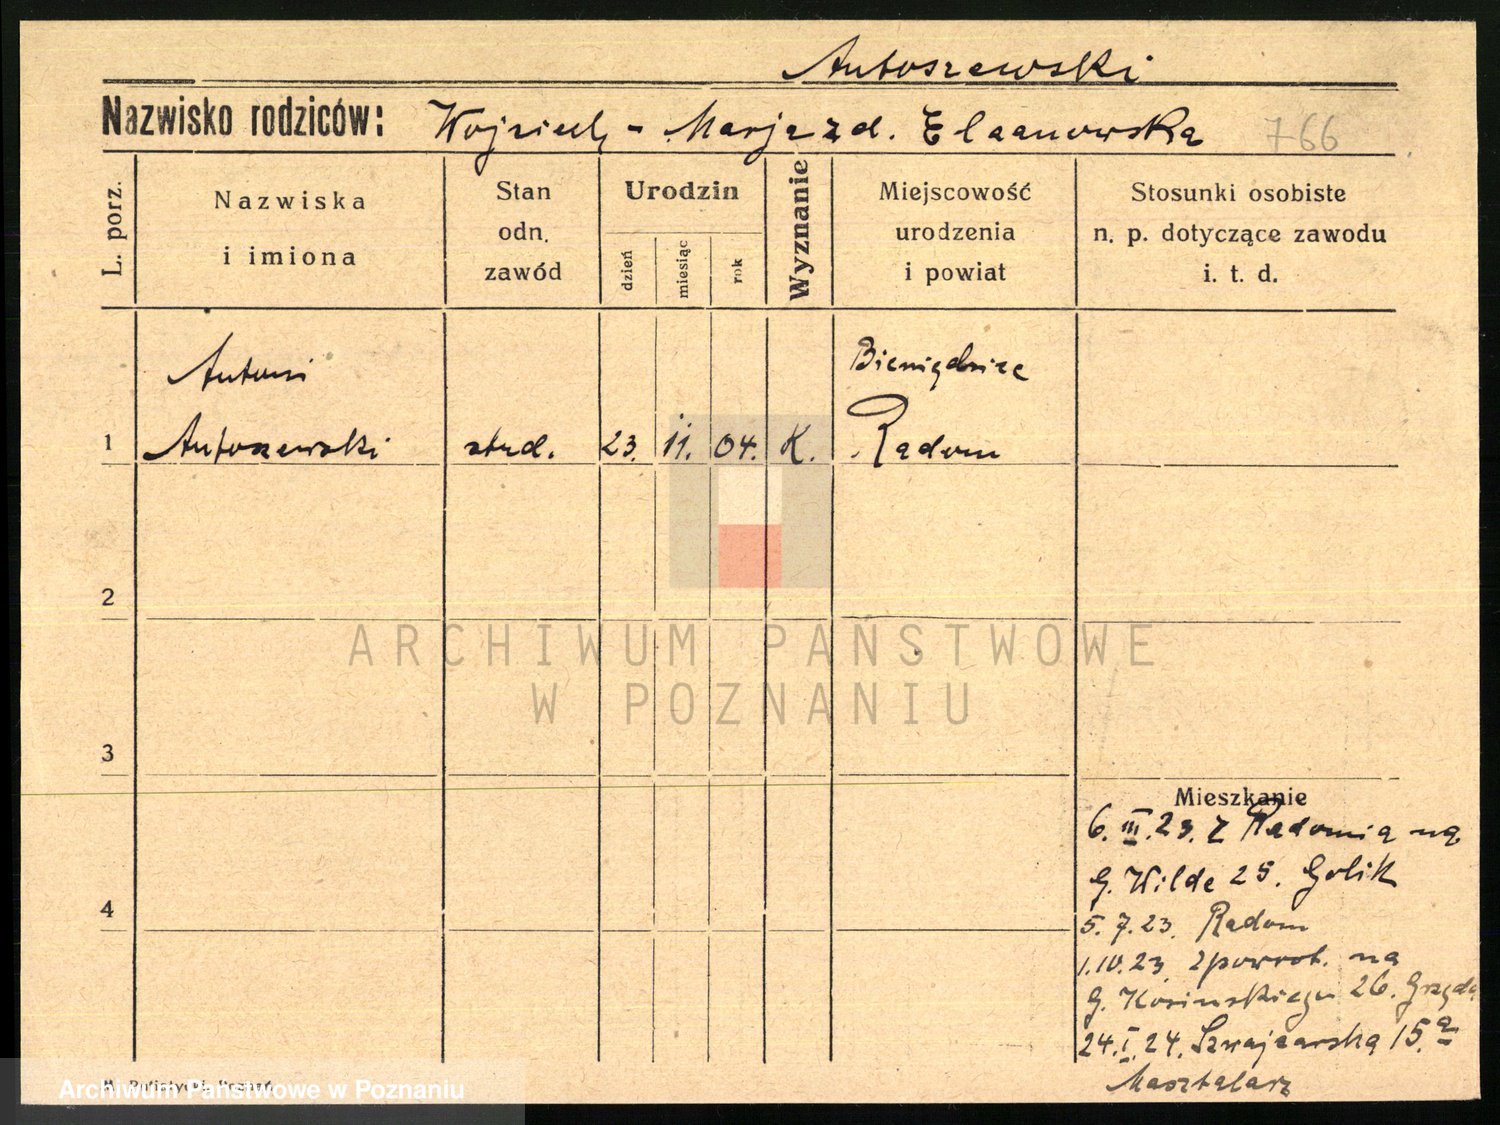 Antoszewski
Nazwisko rodziców: Wojciech - Marja z d. 766
L. porz.
Nazwiska i imiona
Stan odn. zawód
Urodzin
dzień
miesiąc
rok
Wyznanie
Miejscowość urodzenia i powiat
Stosunki osobiste n. p. dotyczące zawodu i. t. d.
Antoni
Bieniędzice
1 Antoszewski stud. 23. 11. 04. K. Radom
2
ARCHIWUM PAŃSTWOWE
W POZNANIU
3
Mieszkanie
6. III. 23. z Radomia na
G. Wilde 25. Golik
4
5. 7. 23. Radom
1.10.23. zpowrot. na
G. Kosinskiego 26.
24. I. 24. Szwajcarska 15a
Masztalarz
Archiwum Państwowe w Poznaniu